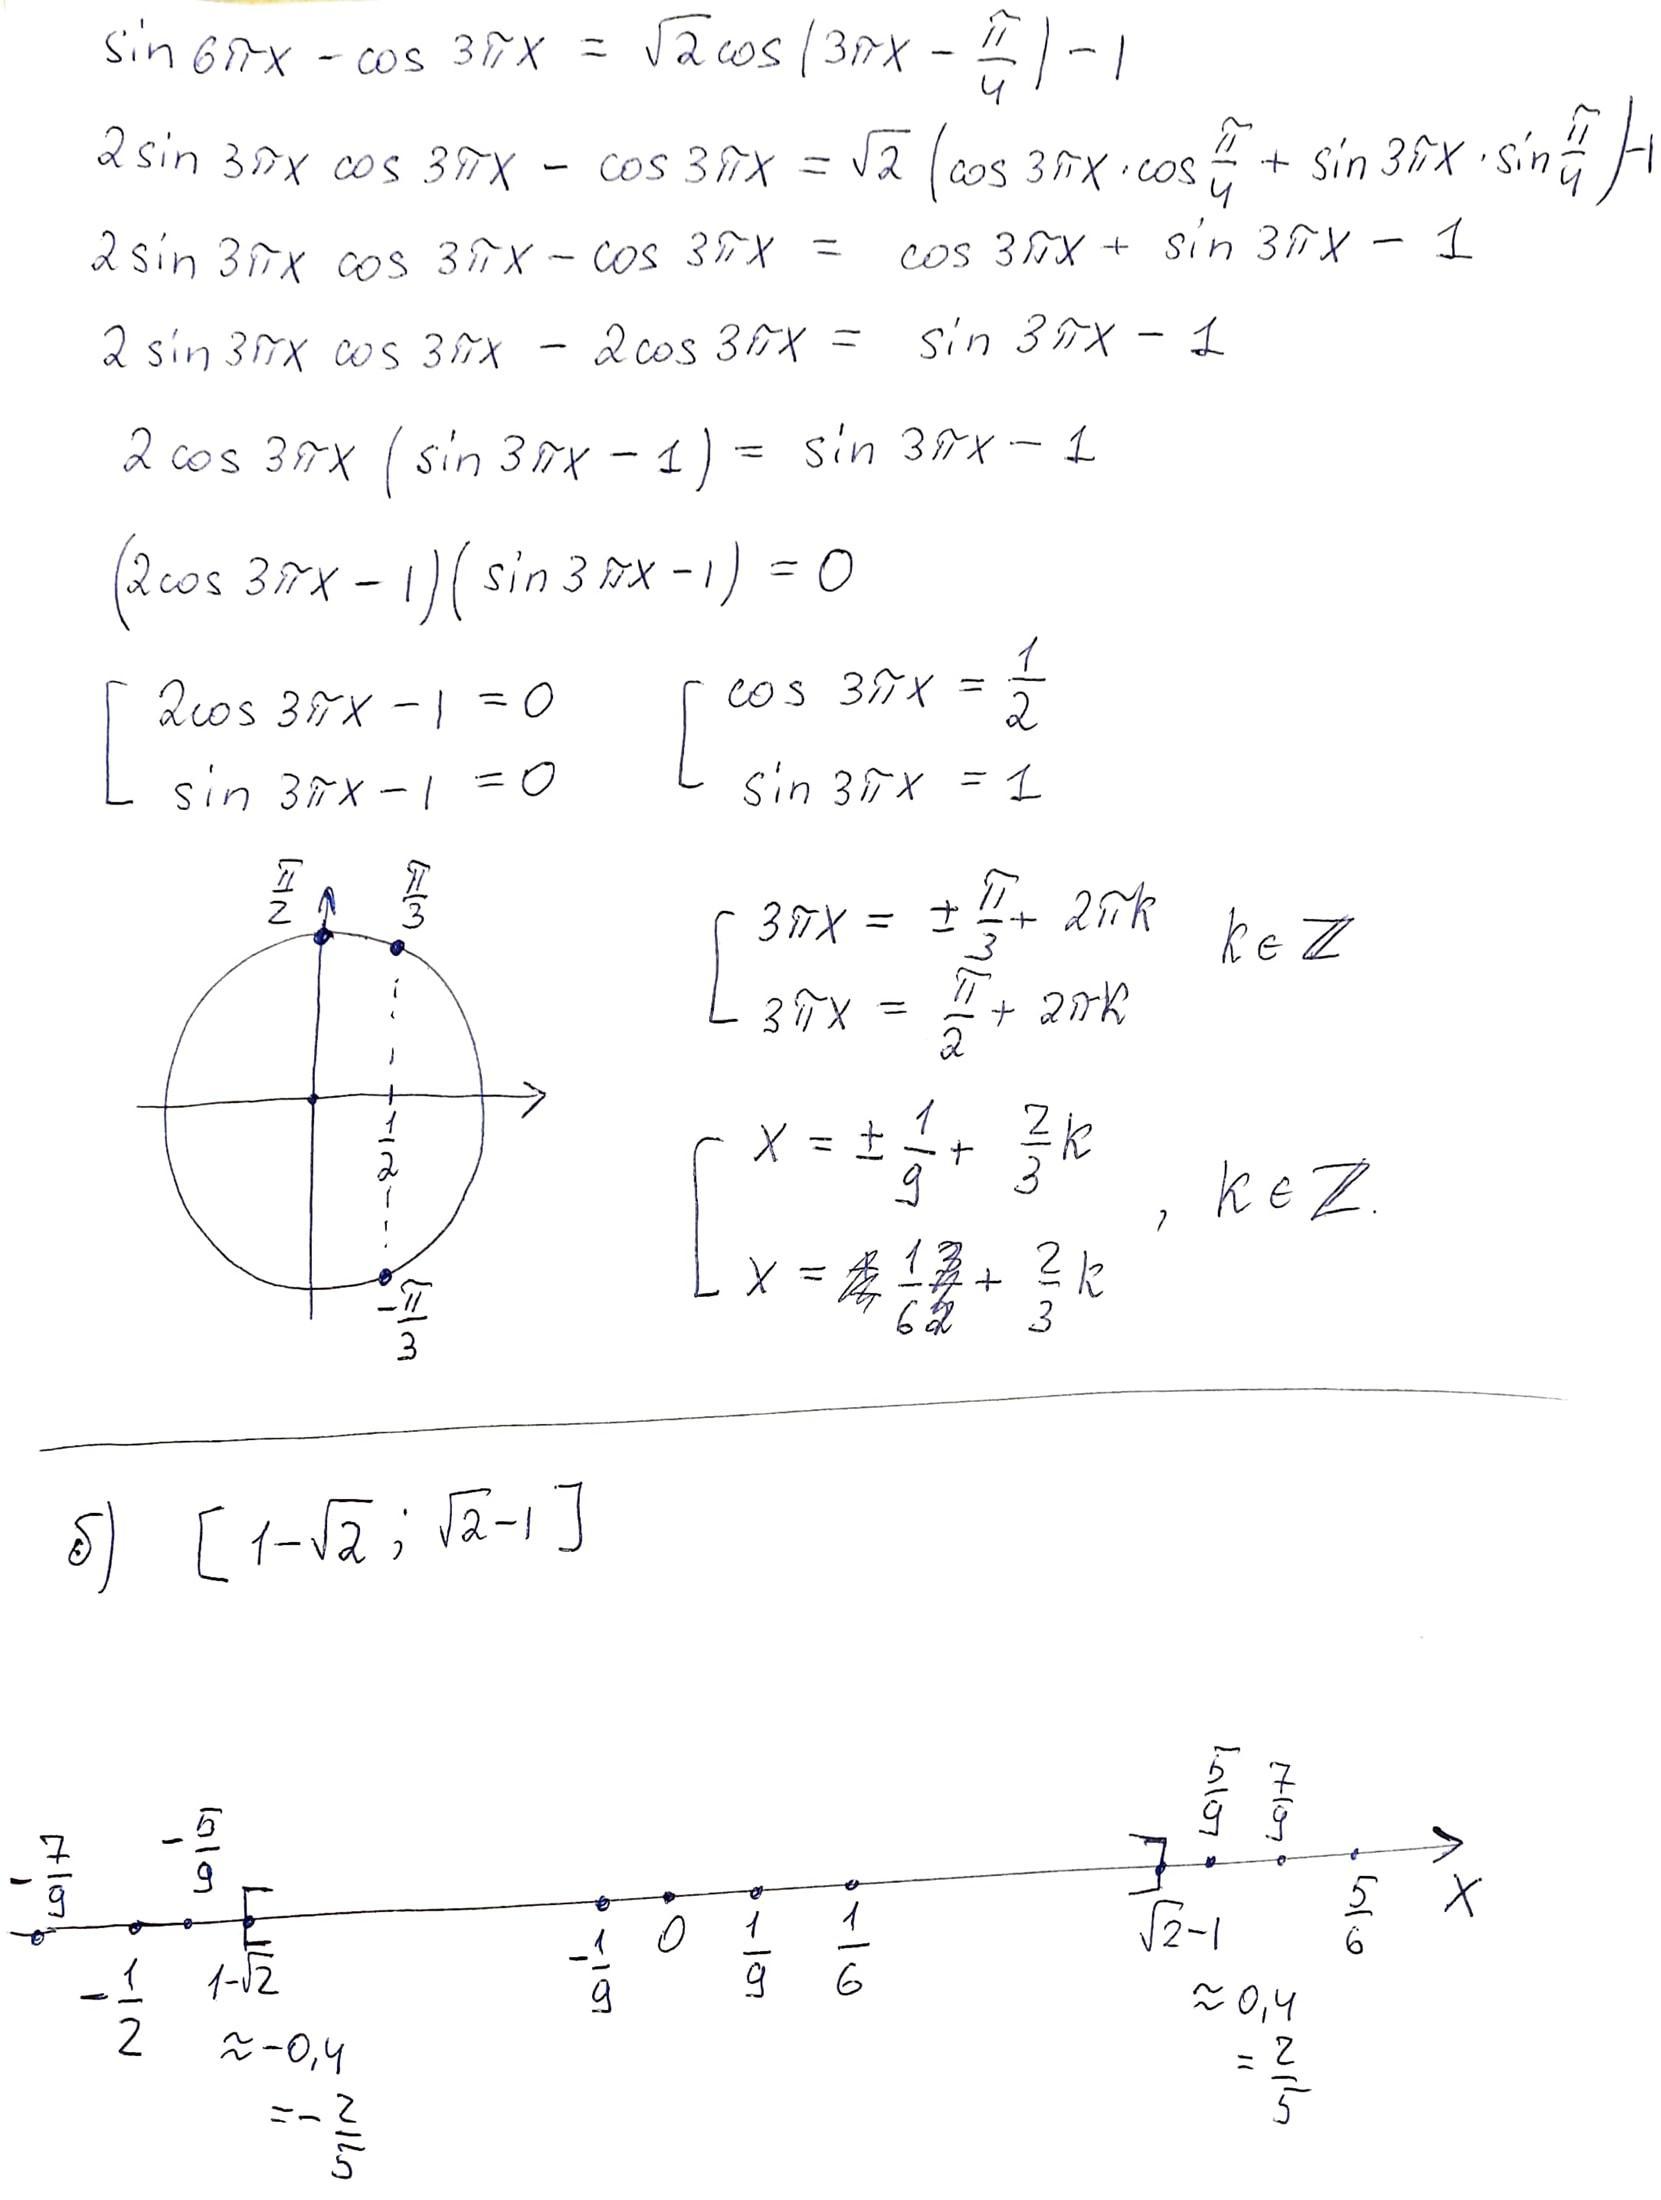 sin 6πx - cos 3πx = √2 cos(3πx - π/4) - 1
2 sin 3πx cos 3πx - cos 3πx = √2 (cos 3πx · cos π/4 + sin 3πx · sin π/4) - 1
2 sin 3πx cos 3πx - cos 3πx = cos 3πx + sin 3πx - 1
2 sin 3πx cos 3πx - 2cos 3πx = sin 3πx - 1
2 cos 3πx (sin 3πx - 1) = sin 3πx - 1
(2cos 3πx - 1)(sin 3πx - 1) = 0
[ 2cos 3πx - 1 = 0
sin 3πx - 1 = 0
[ cos 3πx = 1/2
sin 3πx = 1
π/2 π/3
1/2
-π/3
[ 3πx = ± π/3 + 2πk k ∈ ℤ
3πx = π/2 + 2πk
[ x = ± 1/9 + 2/3 k , k ∈ ℤ.
x = 1/6 + 2/3 k
б) [1-√2; √2-1]
-7/9 -5/9 [ ] 5/9 7/9
-1/2 1-√2 -1/9 0 1/9 1/6 √2-1 5/6 x
≈ -0,4 ≈ 0,4
= -2/5 = 2/5